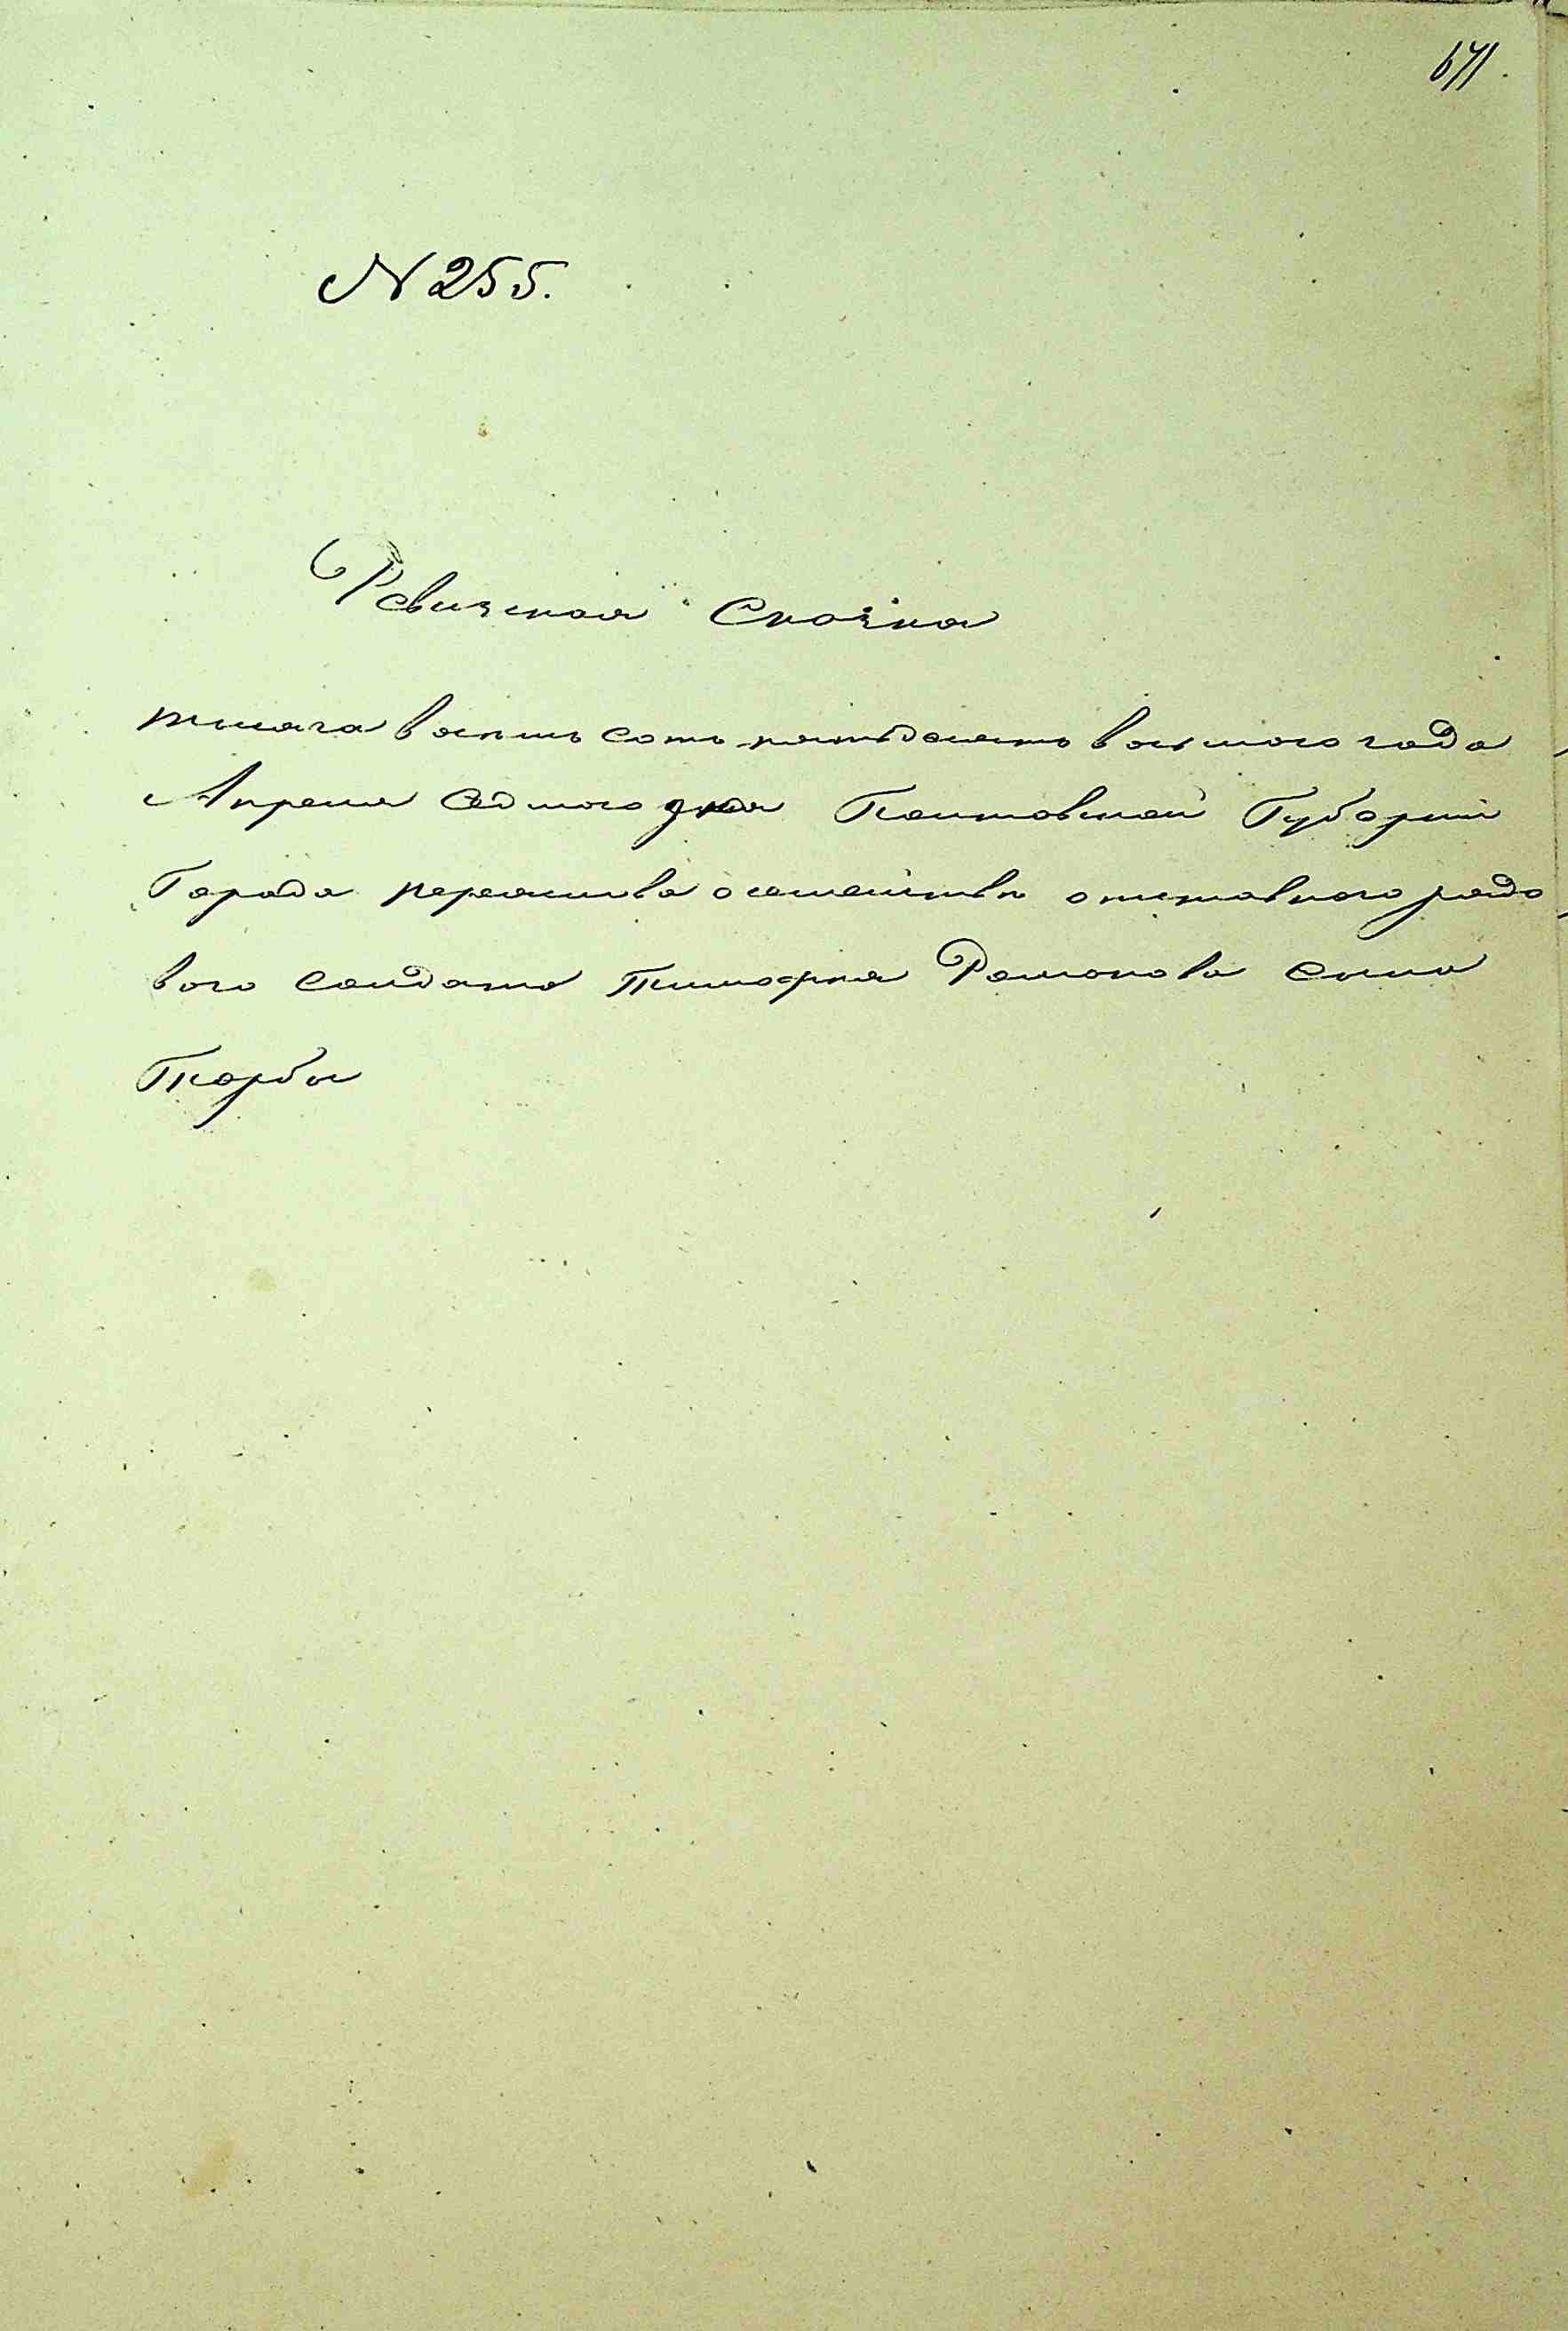 671.
N 255.
Ревизская Сказка
тысяча восемь сотъ пятьдесятъ восьмого года
Апреля седмого дня Полтавской Губерніи
Города переяслава о семействѣ отставного рядо
вого солдата Тимофея Романова сына